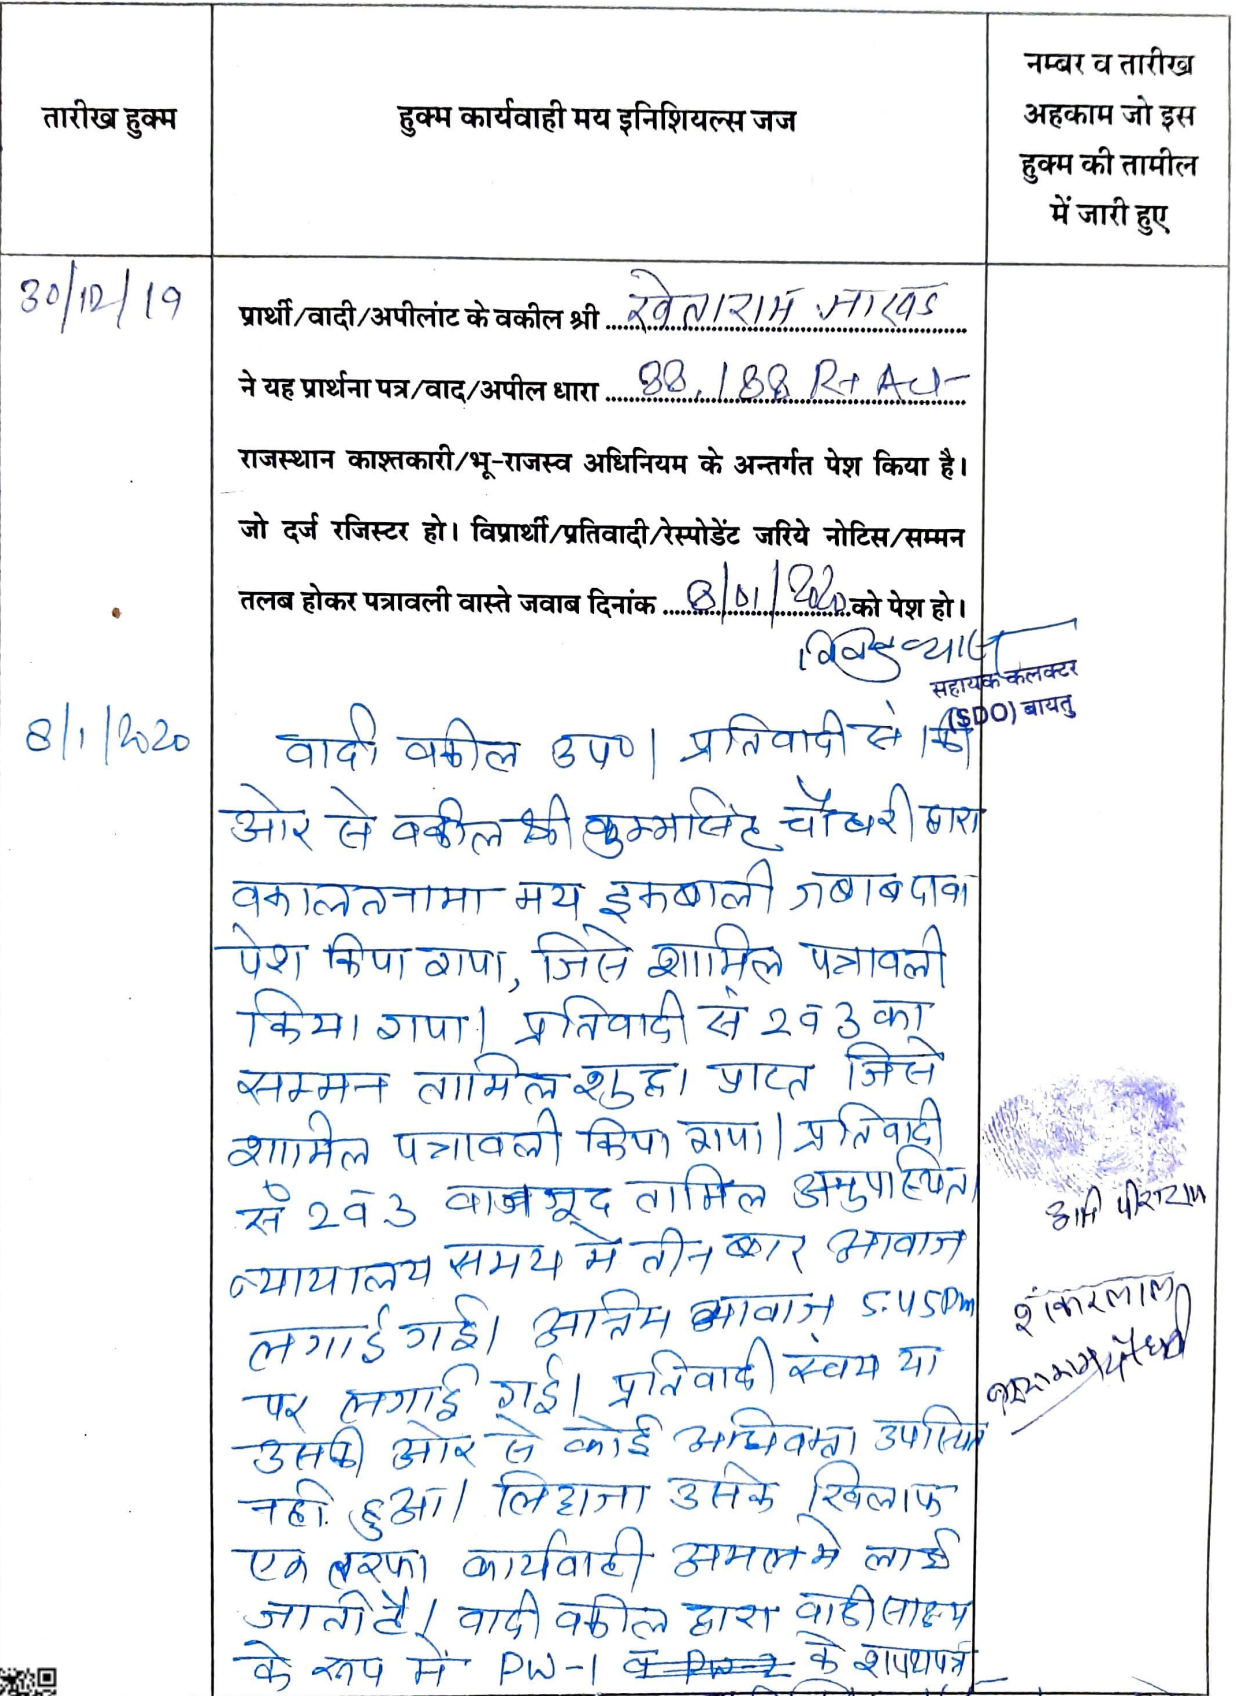 तारीख हुक्म
हुक्म कार्यवाही मय इनिशियल्स जज
नम्बर व तारीख
अहकाम जो इस
हुक्म की तामील
में जारी हुए
30/12/19
प्रार्थी/वादी/अपीलांट के वकील श्री खेताराम जाखड
ने यह प्रार्थना पत्र/वाद/अपील धारा 88,188 RT Act
राजस्थान काश्तकारी/भू-राजस्व अधिनियम के अन्तर्गत पेश किया है।
जो दर्ज रजिस्टर हो। विप्रार्थी/प्रतिवादी/रेस्पोडेंट जरिये नोटिस/सम्मन
तलब होकर पत्रावली वास्ते जवाब दिनांक 8/01/2020 को पेश हो।
सहायक कलक्टर
(SDO) बायतु
8/1/2020
वादी वकील उप०। प्रतिवादी सं 1 की
ओर से वकील श्री कुम्भसिंह चौधरी द्वारा
वकालतनामा मय इकबाली जबाब दावा
पेश किया गया, जिसे शामिल पत्रावली
किया गया। प्रतिवादी सं 2 व 3 का
सम्मन तामिल शुदा प्राप्त जिसे
शामिल पत्रावली किया गया। प्रतिवादी
सं 2 व 3 बाजजूद तामिल अनुपस्थित।
न्यायालय समय मे तीन बार आवाज
लगाई गई। अंतिम आवाज 5:45 Pm
पर लगाई गई। प्रतिवादी स्वंय या
उसकी ओर से कोई अधिवक्ता उपस्थित
नही हुआ। लिहाजा उसके खिलाफ
एक तरफा कार्यवाही अमल मे लाई
जाती है। वादी वकील द्वारा वादी साक्ष्य
के रूप में PW-1 व PW-2 के शपथपत्र
शंकरलाल